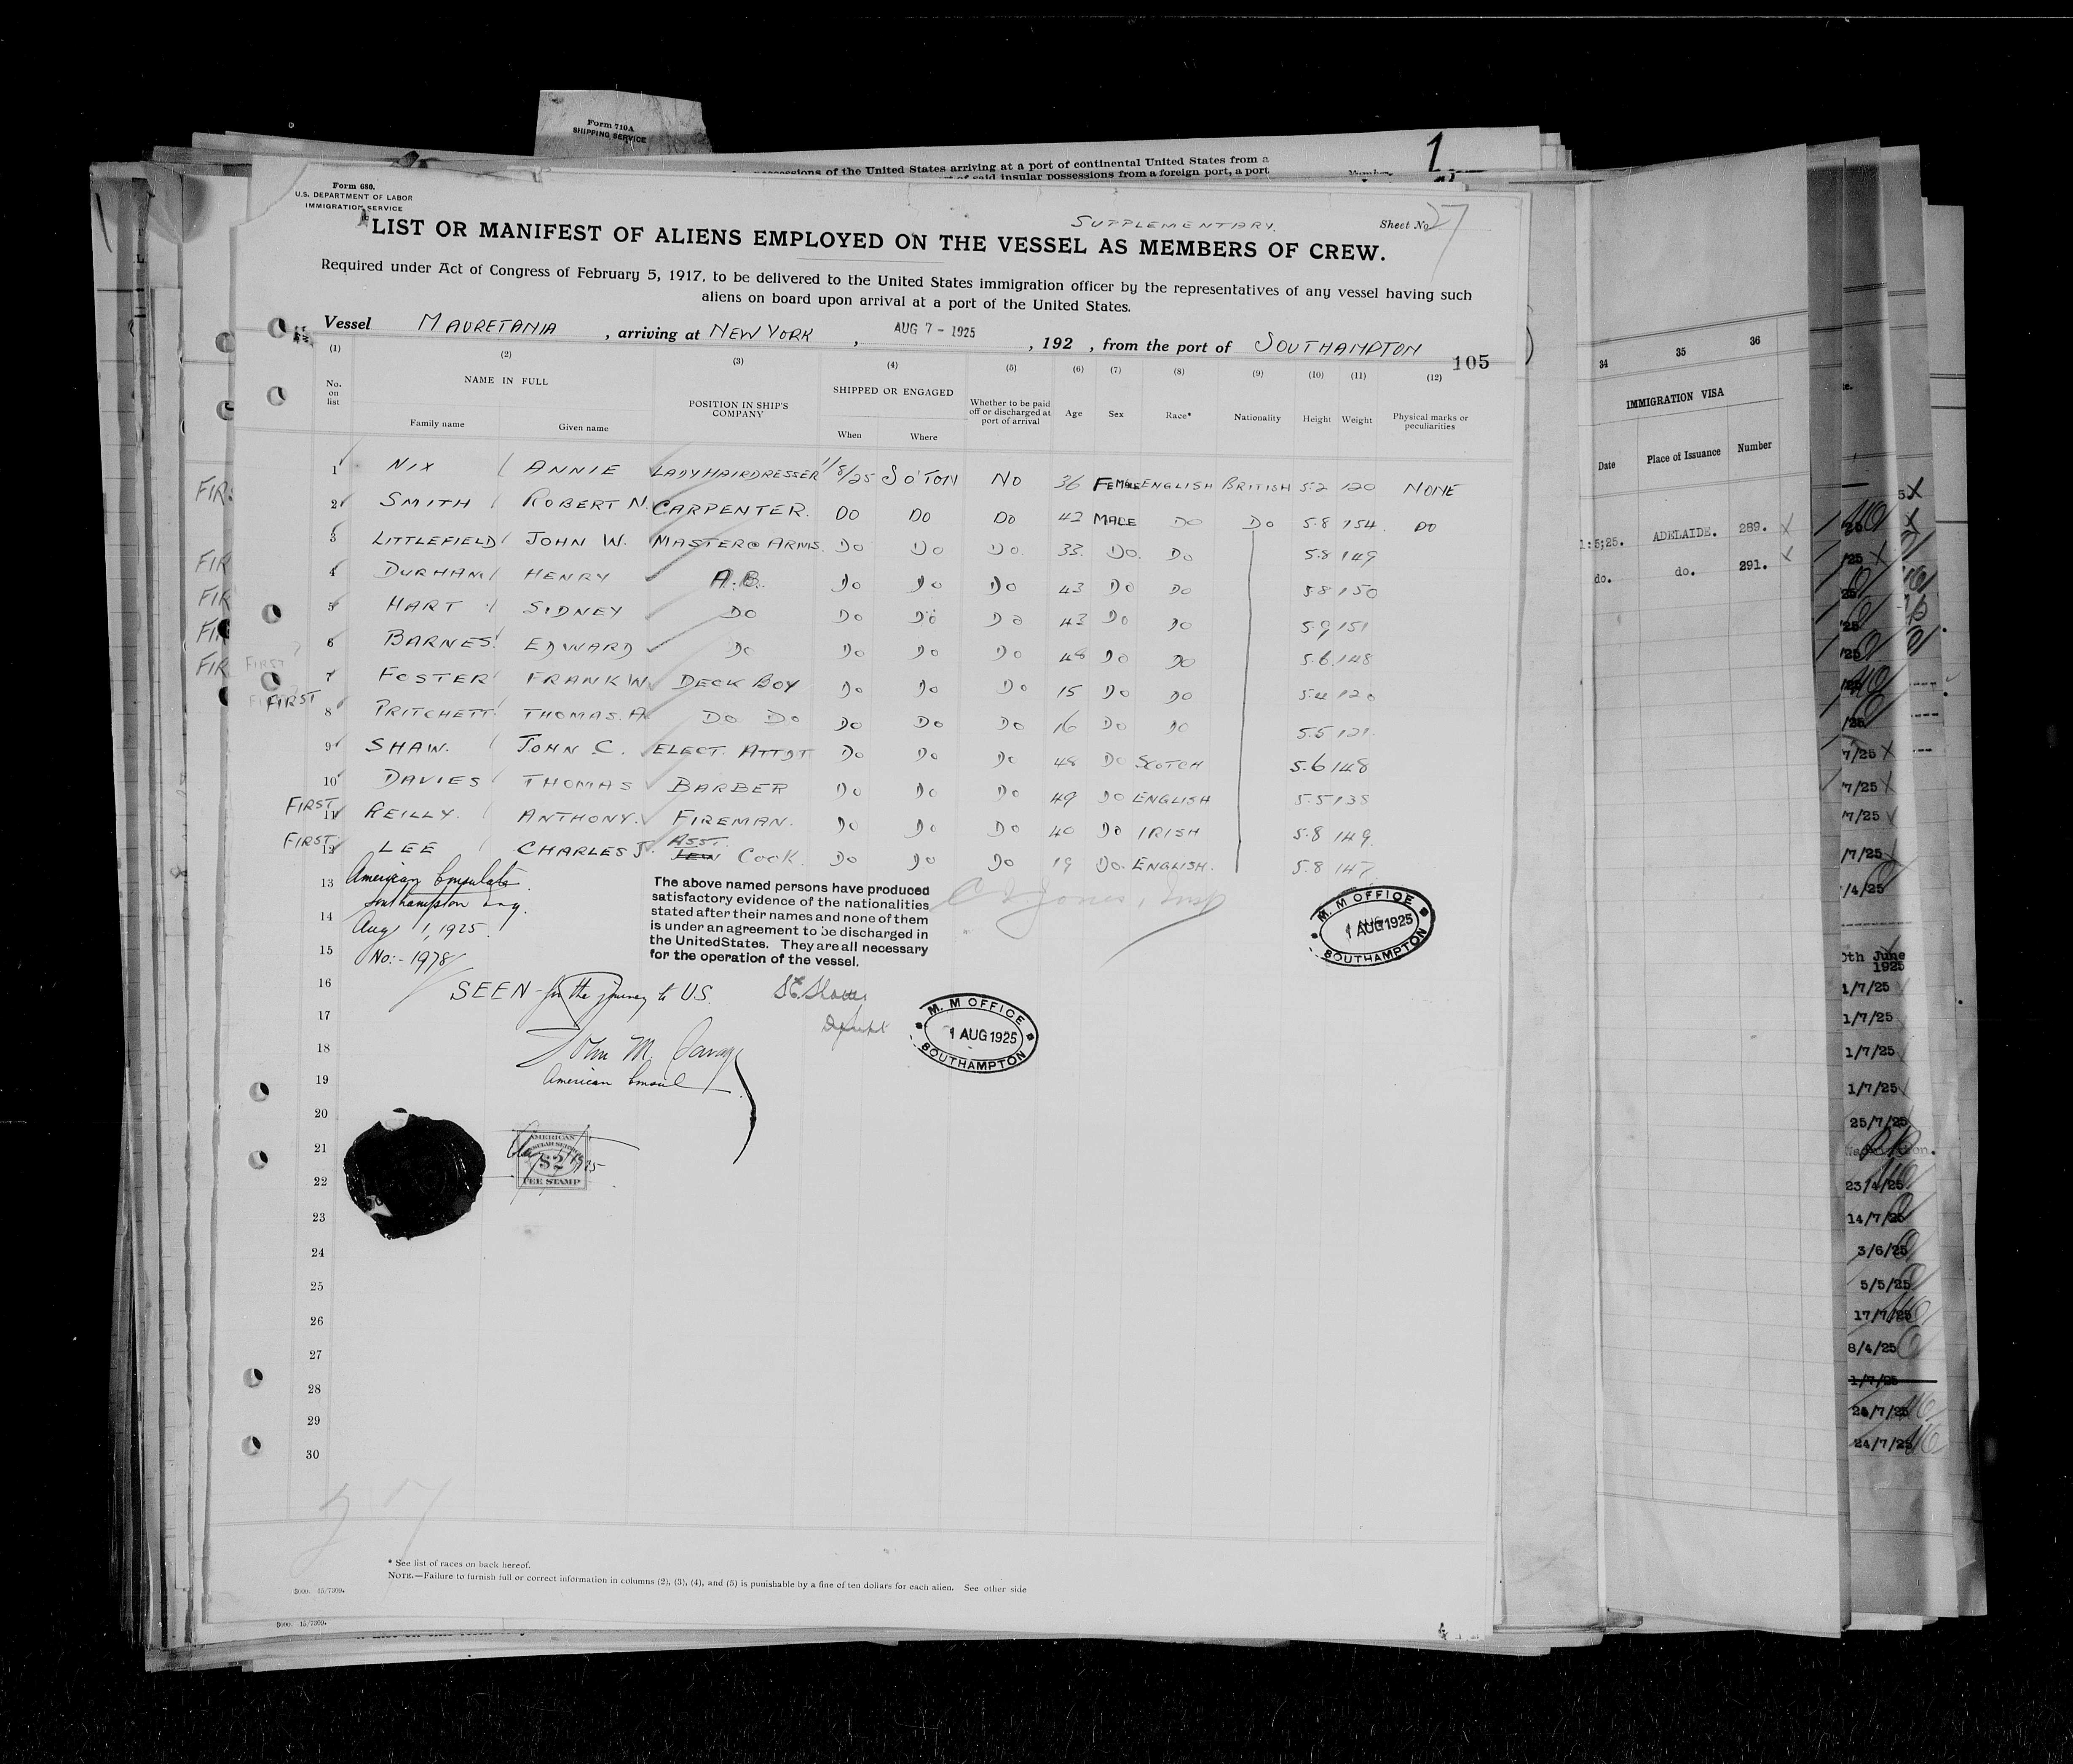 Form 710A
SHIPPING SERVICE
1
possessions of the United States arriving at a port of continental United States from a
of said insular possessions from a foreign port, a port
Form 680.
U.S. DEPARTMENT OF LABOR
IMMIGRATION SERVICE
SUPPLEMENTARY.
Sheet No. 27
LIST OR MANIFEST OF ALIENS EMPLOYED ON THE VESSEL AS MEMBERS OF CREW.
Required under Act of Congress of February 5, 1917, to be delivered to the United States immigration officer by the representatives of any vessel having such
aliens on board upon arrival at a port of the United States.
Vessel MAURETANIA , arriving at NEW YORK , AUG 7 - 1925 , 192 , from the port of SOUTHAMPTON
105
(1) (2) (3) (4) (5) (6) (7) (8) (9) (10) (11) (12)
No. on list NAME IN FULL POSITION IN SHIP'S COMPANY SHIPPED OR ENGAGED Whether to be paid off or discharged at port of arrival Age Sex Race* Nationality Height Weight Physical marks or peculiarities
Family name Given name When Where
1 NIX ANNIE LADY HAIRDRESSER 1/8/25 SO'TON NO 36 FEMALE ENGLISH BRITISH 5.2 120 NONE
2 SMITH ROBERT N. CARPENTER. DO DO DO 42 MALE DO DO 5.8 154 DO
3 LITTLEFIELD JOHN W. MASTER@ARMS. DO DO DO. 33. DO. DO 5.8 149
4 DURHAM HENRY A.B. DO DO DO 43 DO DO 5.8 150
5 HART SIDNEY DO DO DO DO 43 DO DO 5.9 151
6 BARNES EDWARD DO DO DO DO 48 DO DO 5.6 148
FIRST
7 FOSTER FRANK W. DECK BOY DO DO DO 15 DO DO 5.4 120
FIRST
8 PRITCHETT THOMAS. A. DO DO DO DO DO 16 DO DO 5.5 121.
9 SHAW. JOHN C. ELECT. ATTDT DO DO DO 48 DO SCOTCH 5.6 148
10 DAVIES THOMAS BARBER DO DO DO 49 DO ENGLISH 5.5 138
FIRST 11 REILLY. ANTHONY. FIREMAN. DO DO DO 40 DO IRISH 5.8 149.
FIRST 12 LEE CHARLES J. ASST. COOK. DO DO DO 19 DO. ENGLISH. 5.8 147.
13 American Consulate
Southampton Eng.
14 Aug 1, 1925.
15 No:- 1978
The above named persons have produced
satisfactory evidence of the nationalities
stated after their names and none of them
is under an agreement to be discharged in
the United States. They are all necessary
for the operation of the vessel.
Jones, Insp
M. M OFFICE
1 AUG 1925
SOUTHAMPTON
16 SEEN for the journey to U.S.
17
M. M OFFICE
1 AUG 1925
SOUTHAMPTON
18 John M. Savage
19 American Consul
20
21
22
AMERICAN
CONSULAR SERVICE
$2
FEE STAMP
23
24
25
26
27
28
29
30
* See list of races on back hereof.
NOTE.—Failure to furnish full or correct information in columns (2), (3), (4), and (5) is punishable by a fine of ten dollars for each alien. See other side
5000. 15/7309.
5000. 15/7309.
34 35 36
IMMIGRATION VISA
Date Place of Issuance Number
1:5;25. ADELAIDE. 289.
do. do. 291.
7/25
7/25
7/25
/7/25
/4/25
0th June
1925
1/7/25
1/7/25
1/7/25
1/7/25
25/7/25
23/4/25
14/7/25
3/6/25
5/5/25
17/7/25
8/4/25
1/7/25
24/7/25
24/7/25